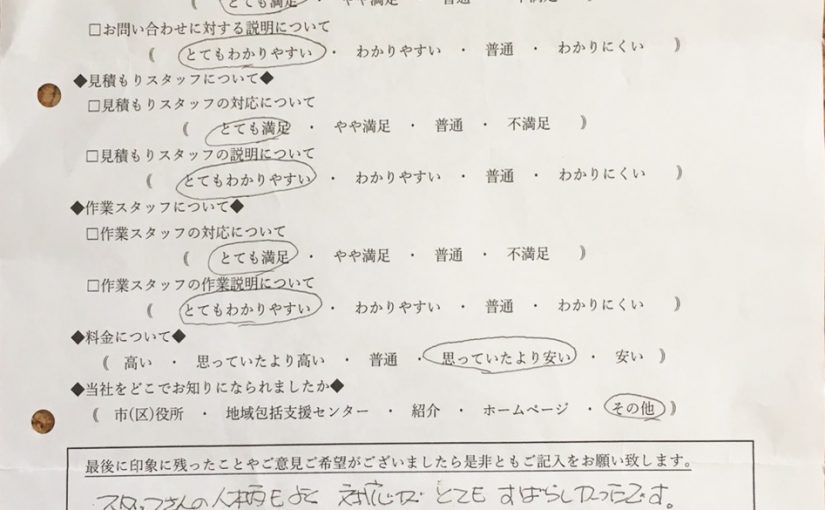 とても満足 ・ やや満足 ・ 普通 ・ 不満足
□お問い合わせに対する説明について
( とてもわかりやすい ・ わかりやすい ・ 普通 ・ わかりにくい )
◆見積もりスタッフについて◆
□見積もりスタッフの対応について
( とても満足 ・ やや満足 ・ 普通 ・ 不満足 )
□見積もりスタッフの説明について
( とてもわかりやすい ・ わかりやすい ・ 普通 ・ わかりにくい )
◆作業スタッフについて◆
□作業スタッフの対応について
( とても満足 ・ やや満足 ・ 普通 ・ 不満足 )
□作業スタッフの作業説明について
( とてもわかりやすい ・ わかりやすい ・ 普通 ・ わかりにくい )
◆料金について◆
( 高い ・ 思っていたより高い ・ 普通 ・ 思っていたより安い ・ 安い )
◆当社をどこでお知りになられましたか◆
( 市(区)役所 ・ 地域包括支援センター ・ 紹介 ・ ホームページ ・ その他 )
最後に印象に残ったことやご意見ご希望がございましたら是非ともご記入をお願い致します。
スタッフさんの人柄もよく 対応など とても すばらしかったです。